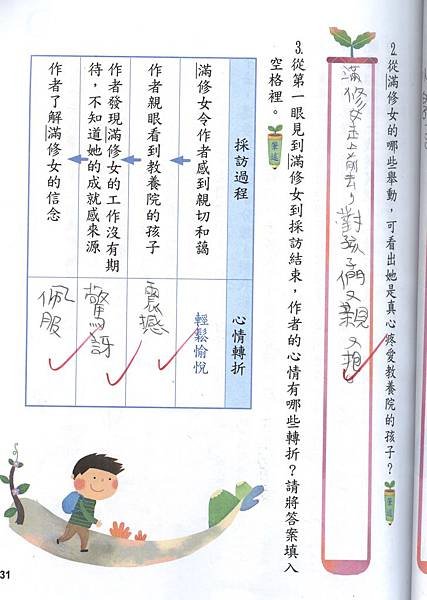 2.從滿修女的哪些舉動，可看出她是真心疼愛教養院的孩子？
筆述
滿修女走上前去，對孩子們又親又抱
3.從第一眼見到滿修女到採訪結束，作者的心情有哪些轉折？請將答案填入
空格裡。
筆述
採訪過程
心情轉折
滿修女令作者感到親切和藹
輕鬆愉悅
作者親眼看到教養院的孩子
震撼
作者發現滿修女的工作沒有期
待，不知道她的成就感來源
驚訝
作者了解滿修女的信念
佩服
31